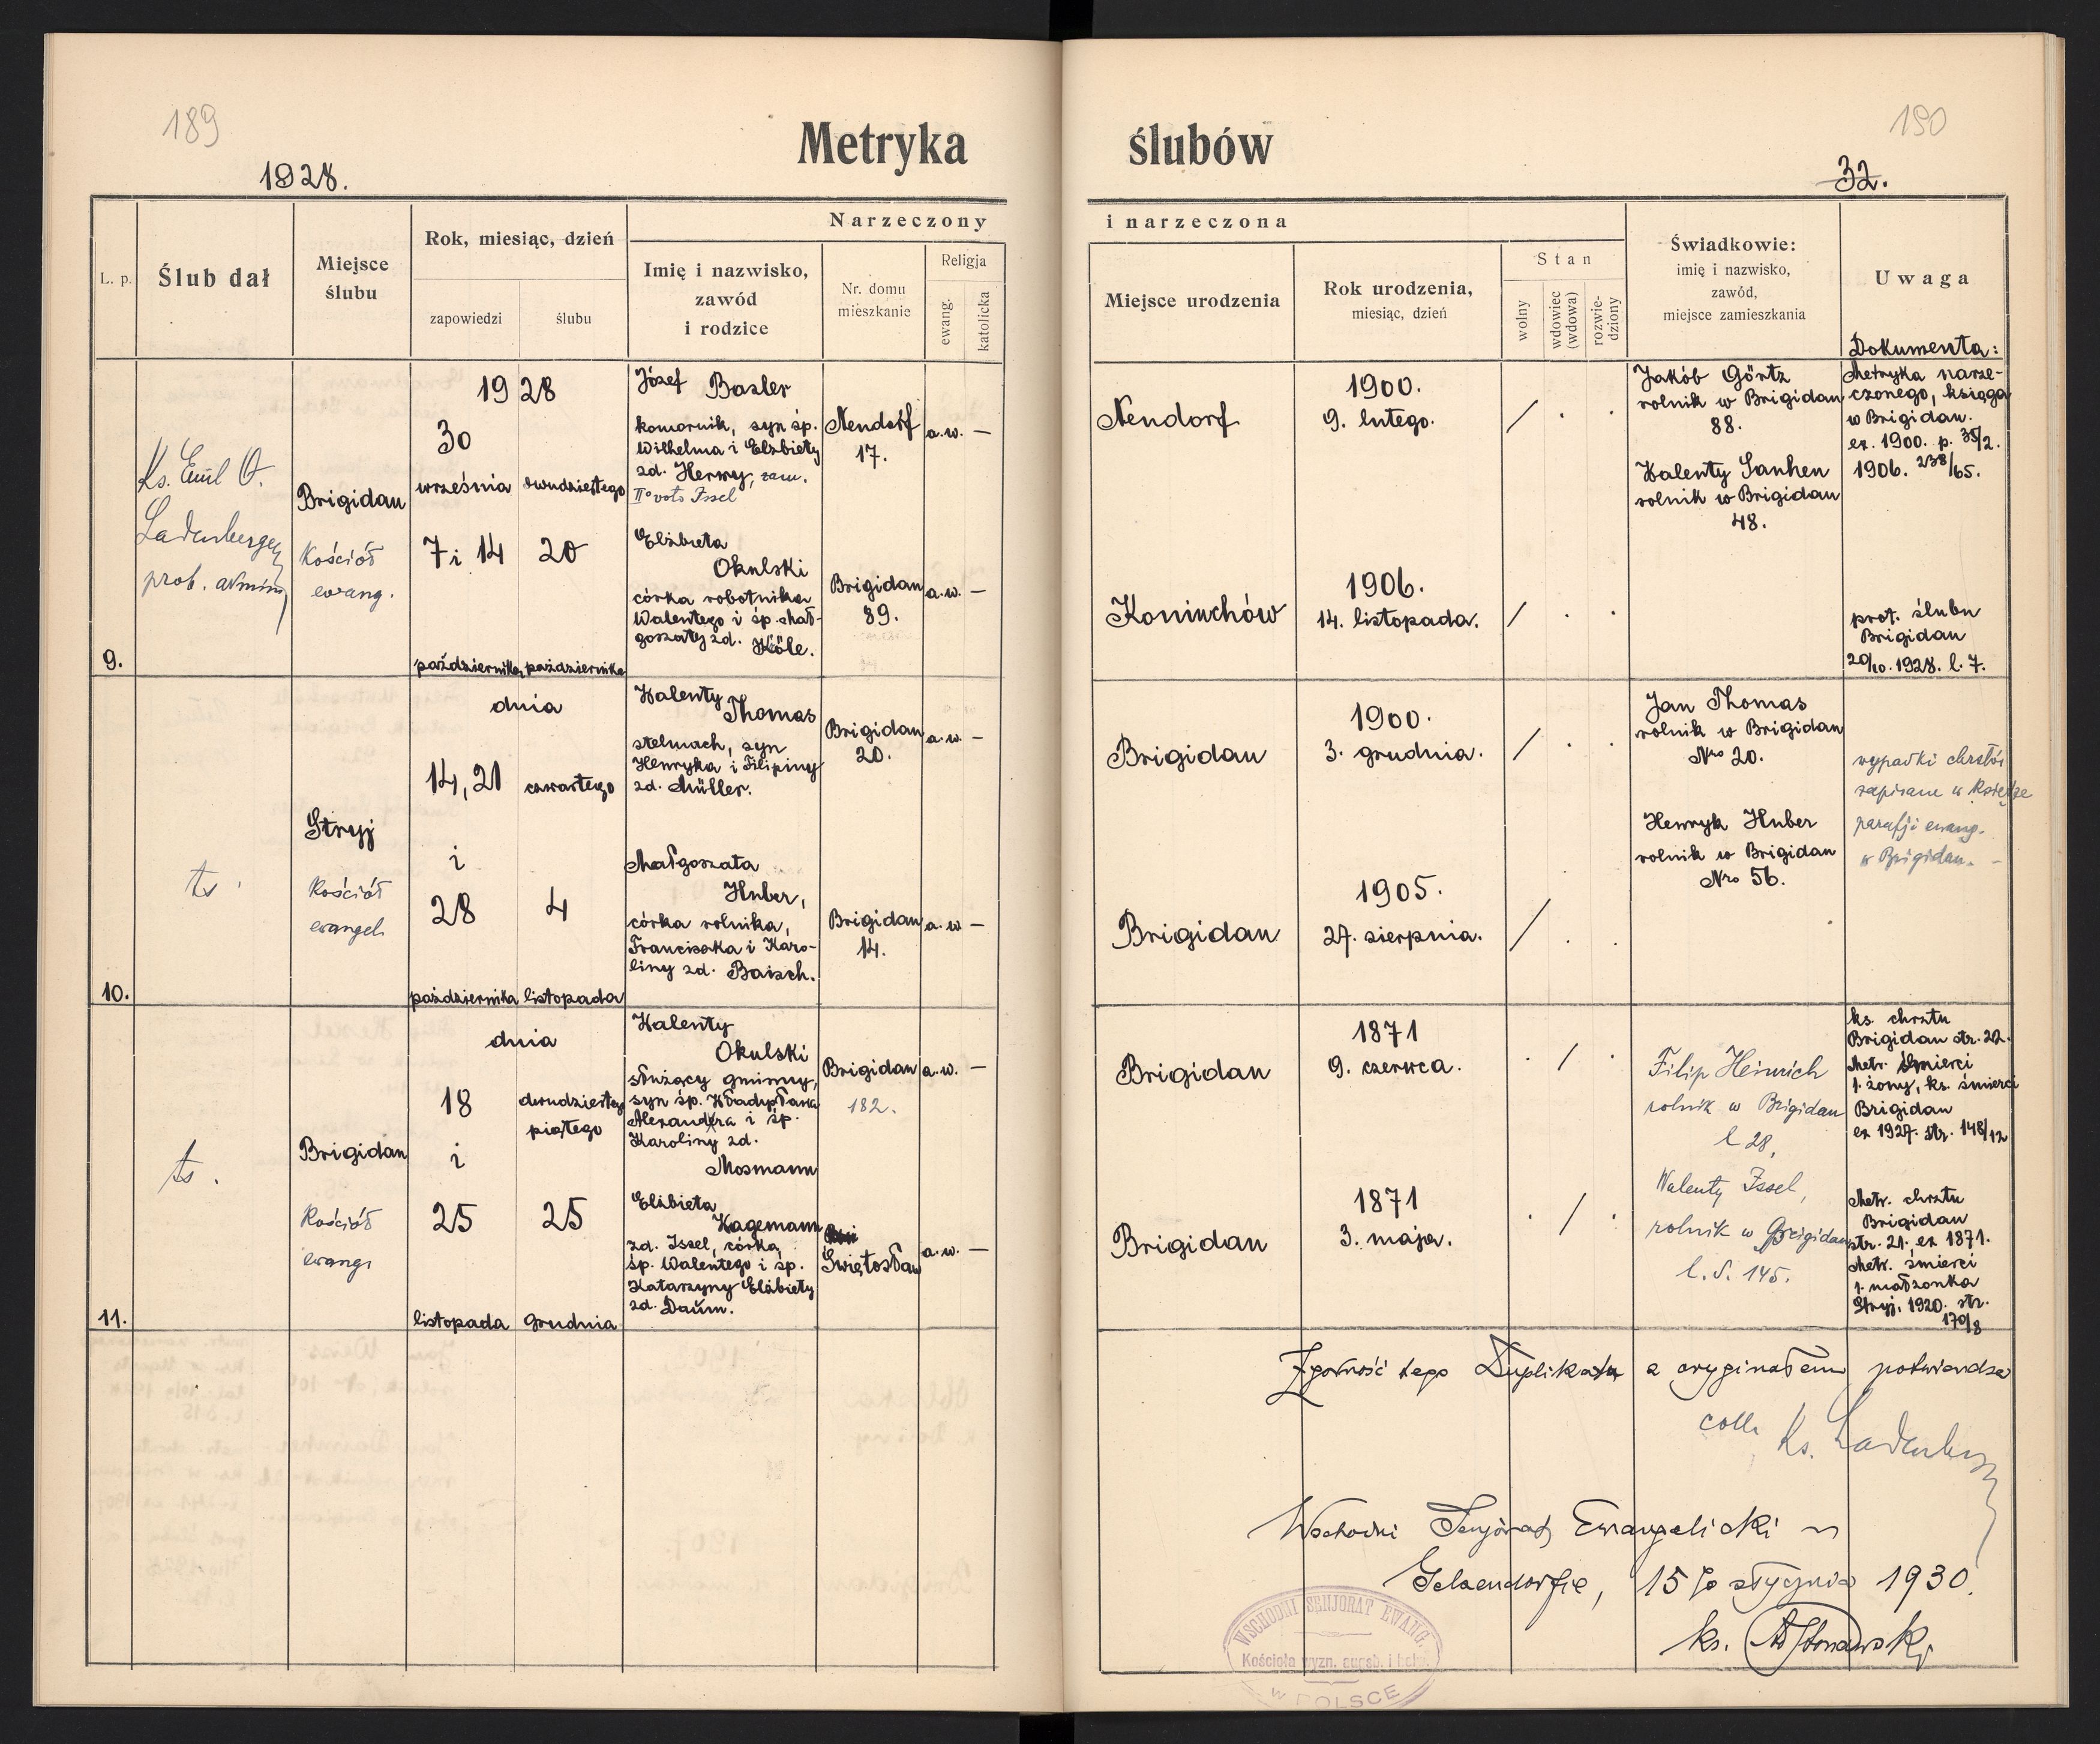 189
190
Metryka ślubów
1928.
32.
L. p.
Ślub dał
Miejsce
ślubu
Rok, miesiąc, dzień
zapowiedzi
ślubu
Narzeczony
i narzeczona
Imię i nazwisko,
zawód
i rodzice
Nr. domu
mieszkanie
Religja
ewang.
katolicka
Miejsce urodzenia
Rok urodzenia,
miesiąc, dzień
Stan
wolny
wdowiec
(wdowa)
rozwie-
dziony
Świadkowie:
imię i nazwisko,
zawód,
miejsce zamieszkania
Uwaga
Dokumenta:
9.
Ks. Emil O.
Ladenberger
prob. admin
Brigidan
Kościół
ewang.
1928
30
września
7 i 14
października
dwudziestego
20
października
Józef Basler
komornik, syn śp.
Wilhelma i Elżbiety
zd. Herwy, zam.
II° voto Issel
Nendorf
17.
a.w. —
Elżbieta
Okulski
córka robotnika
Walentego i śp. Mał-
gorzaty zd. Köle.
Brigidan
89.
a.w. —
Nendorf
1900.
9. lutego.
/ . .
Koniuchów
1906.
14. listopada.
/ . .
Jakób Görtz
rolnik w Brigidan
88.
Walenty Sanhen
rolnik w Brigidan
48.
Metryka narze-
czonego, księga
w Brigidan.
ex. 1900. p. 35/2.
1906. 238/65.
prot. ślubu
Brigidan
20/10. 1928. l. 7.
10.
ts.
Stryj
Kościół
ewangel.
dnia
14, 21
i
28
października
czwartego
4
listopada
Walenty
Thomas
stelmach, syn
Henryka i Filipiny
zd. Müller.
Brigidan
20.
a.w. —
Małgorzata
Huber,
córka rolnika,
Franciszka i Karo-
liny zd. Baisch.
Brigidan
14.
a.w —
Brigidan
1900.
3. grudnia.
/ . .
Brigidan
1905.
27. sierpnia.
/ . .
Jan Thomas
rolnik w Brigidan
Nro 20.
Henryk Huber
rolnik w Brigidan
Nro 56.
wypadki chrztów
zapisane w Księdze
parafji ewang.
w Brigidan. —
11.
ts.
Brigidan
Kościół
ewang.
dnia
18
i
25
listopada
dwudziestego
piątego
25
grudnia
Walenty
Okulski
służący gminny,
syn śp. Władysława
Alexandra i śp.
Karoliny zd.
Mosmann
Brigidan
182.
a.w. —
Elżbieta
Hagemann
zd. Issel, córka
śp. Walentego i śp.
Katarzyny Elżbiety
zd. Daum.
Świętosław
a.w. —
Brigidan
1871
9. czerwca.
. / .
Brigidan
1871
3. maja.
. / .
Filip Heinrich
rolnik w Brigidan
l 28,
Walenty Issel,
rolnik w Brigidan
l. d. 145.
ks. chrztu
Brigidan str. 22.
Metr. śmierci
1. żony, ks. śmierci
Brigidan
ex 1927. str. 148/12
Metr. chrztu
Brigidan
str. 21. ex 1871.
Metr. śmierci
1. małżonka
Stryj, 1920. str.
170/8
Zgodność tego Duplikatu z oryginałem potwierdza
coll. Ks. Ladenberger
Wschodni Senjorat Ewangelicki w
Gelsendorfie, 15 go stycznia 1930.
ks.
WSCHODNI SENJORAT EWANG.
Kościoła wyzn. augsb. i helw.
w POLSCE